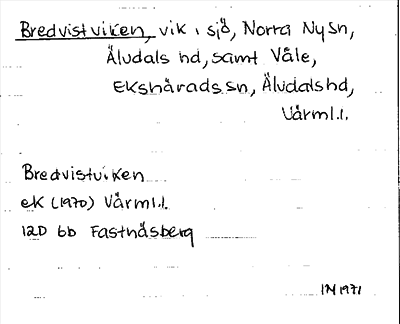 Bredvistviken, vik i sjö, Norra Ny sn,
Älvdals hd, samt Våle,
Ekshärads sn, Älvdals hd,
Värml.l.
Bredvistviken
ek (1970) Värml.l.
12D 6b Fastnäsberg
IN 1971